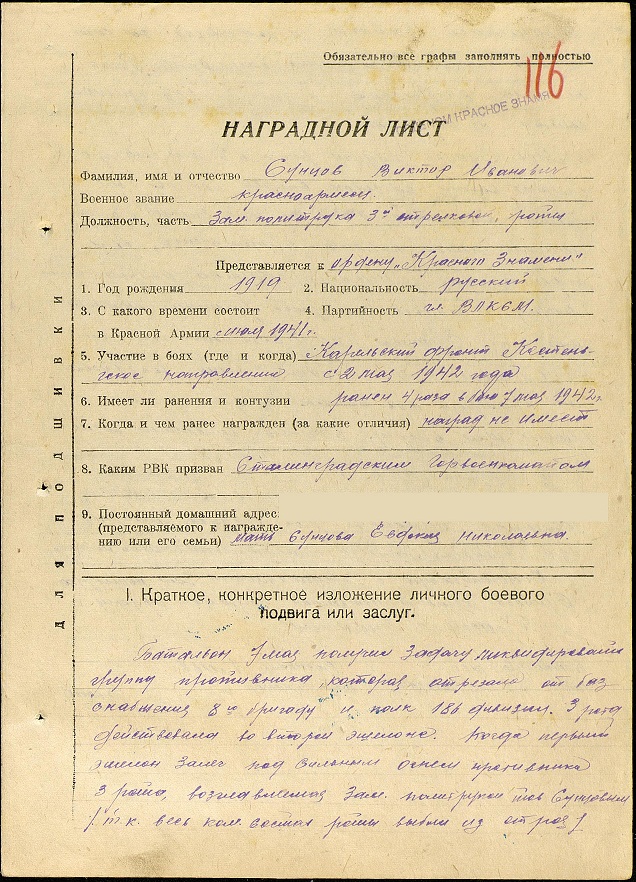 Обязательно все графы заполнять полностью
116
КРАСНОЕ ЗНАМЯ
НАГРАДНОЙ ЛИСТ
Фамилия, имя и отчество Сунцов Виктор Иванович
Военное звание красноармеец.
Должность, часть Зам. политрука 3й стрелковой роты
Представляется к ордену „Красного Знамени"
1. Год рождения 1919 2. Национальность русский
3. С какого времени состоит 4. Партийность чл. ВЛКСМ.
в Красной Армии с июля 1941 г.
5. Участие в боях (где и когда) Карельский фронт Кестень-
гское направление с 2 мая 1942 года
6. Имеет ли ранения и контузии ранен 4 раза в бою 7 мая 1942 г.
7. Когда и чем ранее награжден (за какие отличия) наград не имеет
8. Каким РВК призван Сталинградским Горвоенкоматом
9. Постоянный домашний адрес
(представляемого к награжде-
нию или его семьи) Мать Сунцова Евдокия Николаевна.
ДЛЯ ПОДШИВКИ
I. Краткое, конкретное изложение личного боевого
подвига или заслуг.
Баталион 7 мая получил задачу ликвидировать
группу противника которая отрезала от баз
снабжения 8ю бригаду и полк 186 дивизии. 3 рота
действовала во втором эшелоне. Когда первый
эшелон залег под сильным огнем противника
3 рота возглавляемая Зам. политрука тов Сунцовым
/ т.к. весь ком. состав роты выбыл из строя /